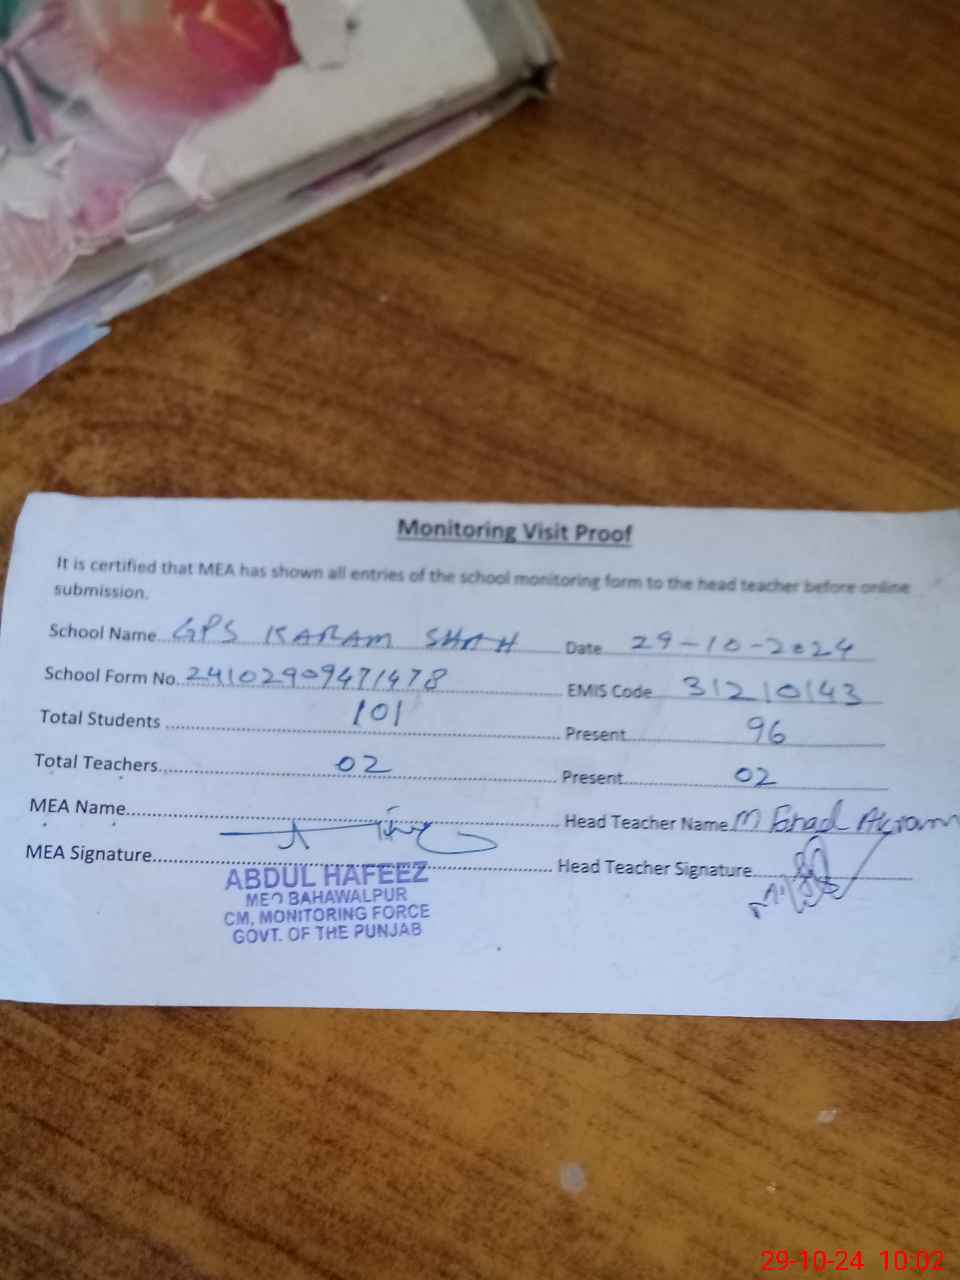 Monitoring Visit Proof
It is certified that MEA has shown all entries of the school monitoring form to the head teacher before online
submission.
School Name GPS KARAM SHAH Date 29-10-2024
School Form No. 24102909471478 EMIS Code 31210143
Total Students 101 Present 96
Total Teachers 02 Present 02
MEA Name Head Teacher Name M Akram
MEA Signature Head Teacher Signature
ABDUL HAFEEZ
MEO BAHAWALPUR
CM, MONITORING FORCE
GOVT. OF THE PUNJAB
29-10-24 10:02